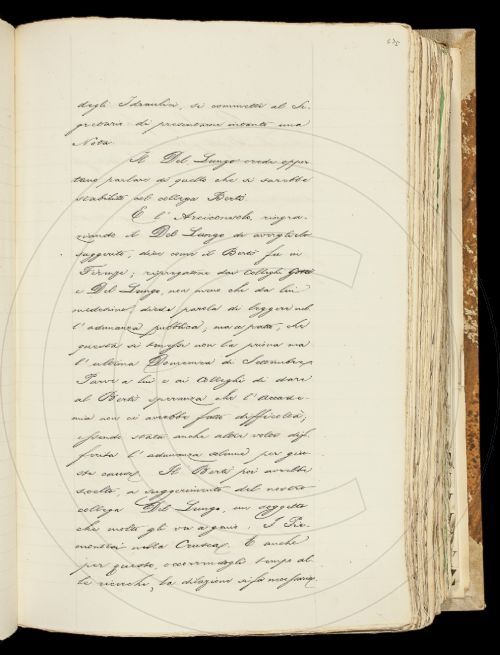 635
degli Idraulici, si commette al Se-
gretario di presentarne intanto una
Nota.
Il Del Lungo crede oppor-
tuno parlare di quello che si sarebbe
stabilito col collega Berti.
E l'Arciconsolo, ringra-
ziando il Del Lungo di averglielo
suggerito, dice come il Berti fu in
Firenze; ripregatone dai Colleghi
e Del Lungo, non meno che da lui
medesimo, diede parola di leggere nel-
l'adunanza pubblica, ma a patto, che
questa si tenesse non la prima ma
l'ultima Domenica di Settembre.
Parve a lui e ai Colleghi di dare
al Berti speranza che l'Accade-
mia non ci avrebbe fatto difficoltà;
essendo stata anche altre volte dif-
ferita l'adunanza solenne per giu-
sta causa. Il Berti poi avrebbe
scelto, a suggerimento del nostro
collega Del Lungo, un soggetto
che molto gli va a genio: I Pie-
montesi nella Crusca. E anche
per questo, occorrendogli tempo al-
le ricerche, la dilazione si fa necessaria.